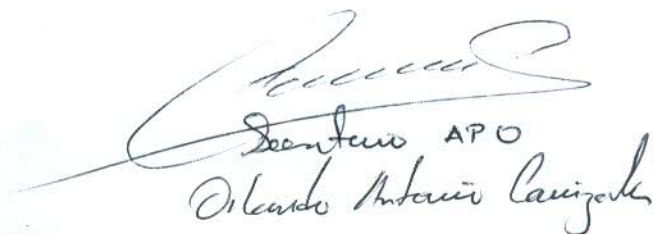 Secretario APO
Orlando Antonio Canizales